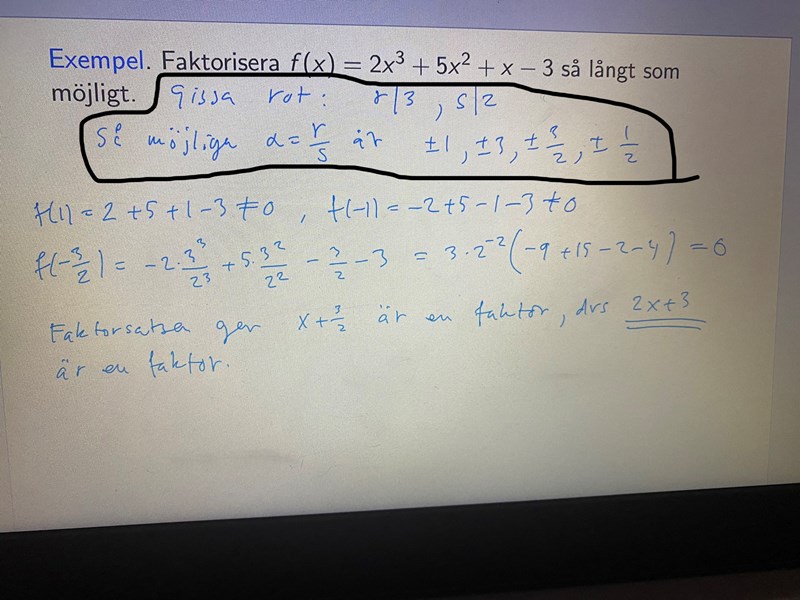 Exempel. Faktorisera f(x) = 2x³ + 5x² + x − 3 så långt som
möjligt. Gissa rot: r|3, s|2
Så möjliga α = r/s är ±1, ±3, ±3/2, ±1/2
f(1) = 2 + 5 + 1 − 3 ≠ 0, f(−1) = −2 + 5 − 1 − 3 ≠ 0
f(−3/2) = −2·3³/2³ + 5·3²/2² − 3/2 − 3 = 3·2⁻²(−9 + 15 − 2 − 4) = 0
Faktorsatsen ger x + 3/2 är en faktor, dvs 2x+3
är en faktor.